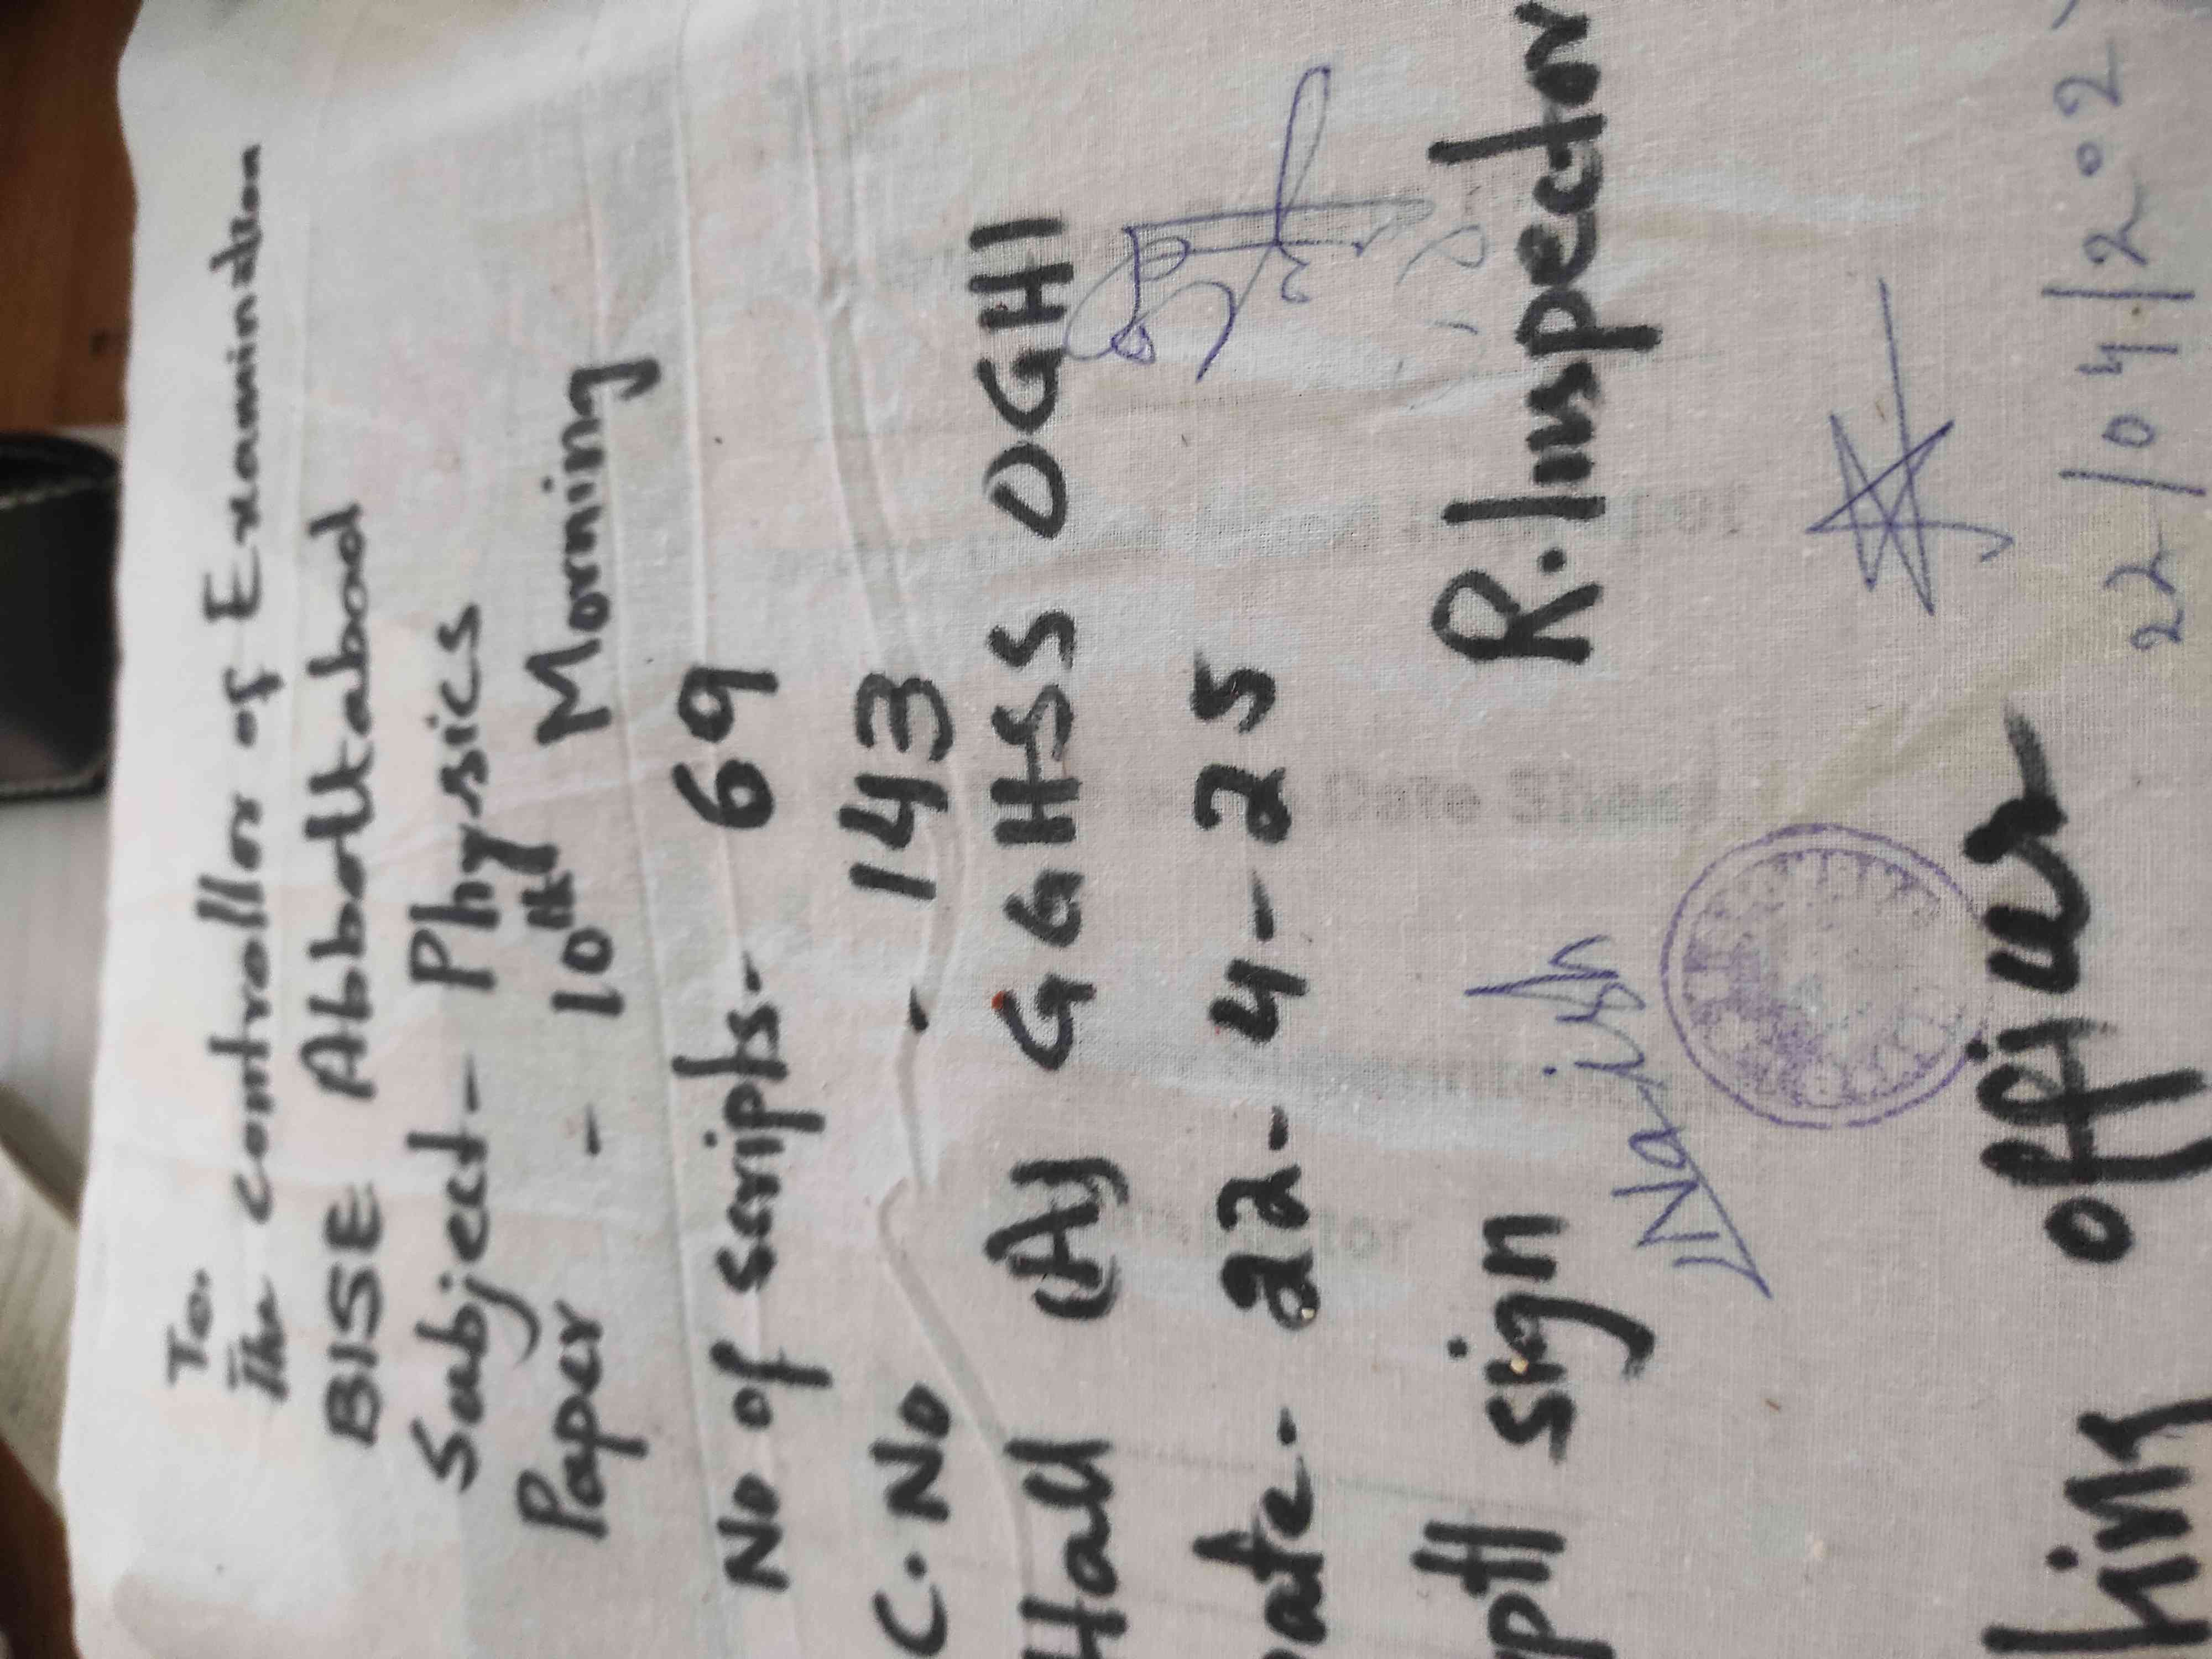 To.
The controllor of Examination
BISE Abbottabad
Subject - Physics
Paper - 10th Morning
No of scripts - 69
C. No - 143
Hall (A) GGHSS OGHI
Date - 22 - 4 - 25
sign R. Inspector
22/04/202
officer